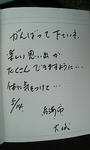 がんばって下さいネ
楽しい思い出が
たくさんできますように…
体に気をつけて…
5/14
長崎市
大城